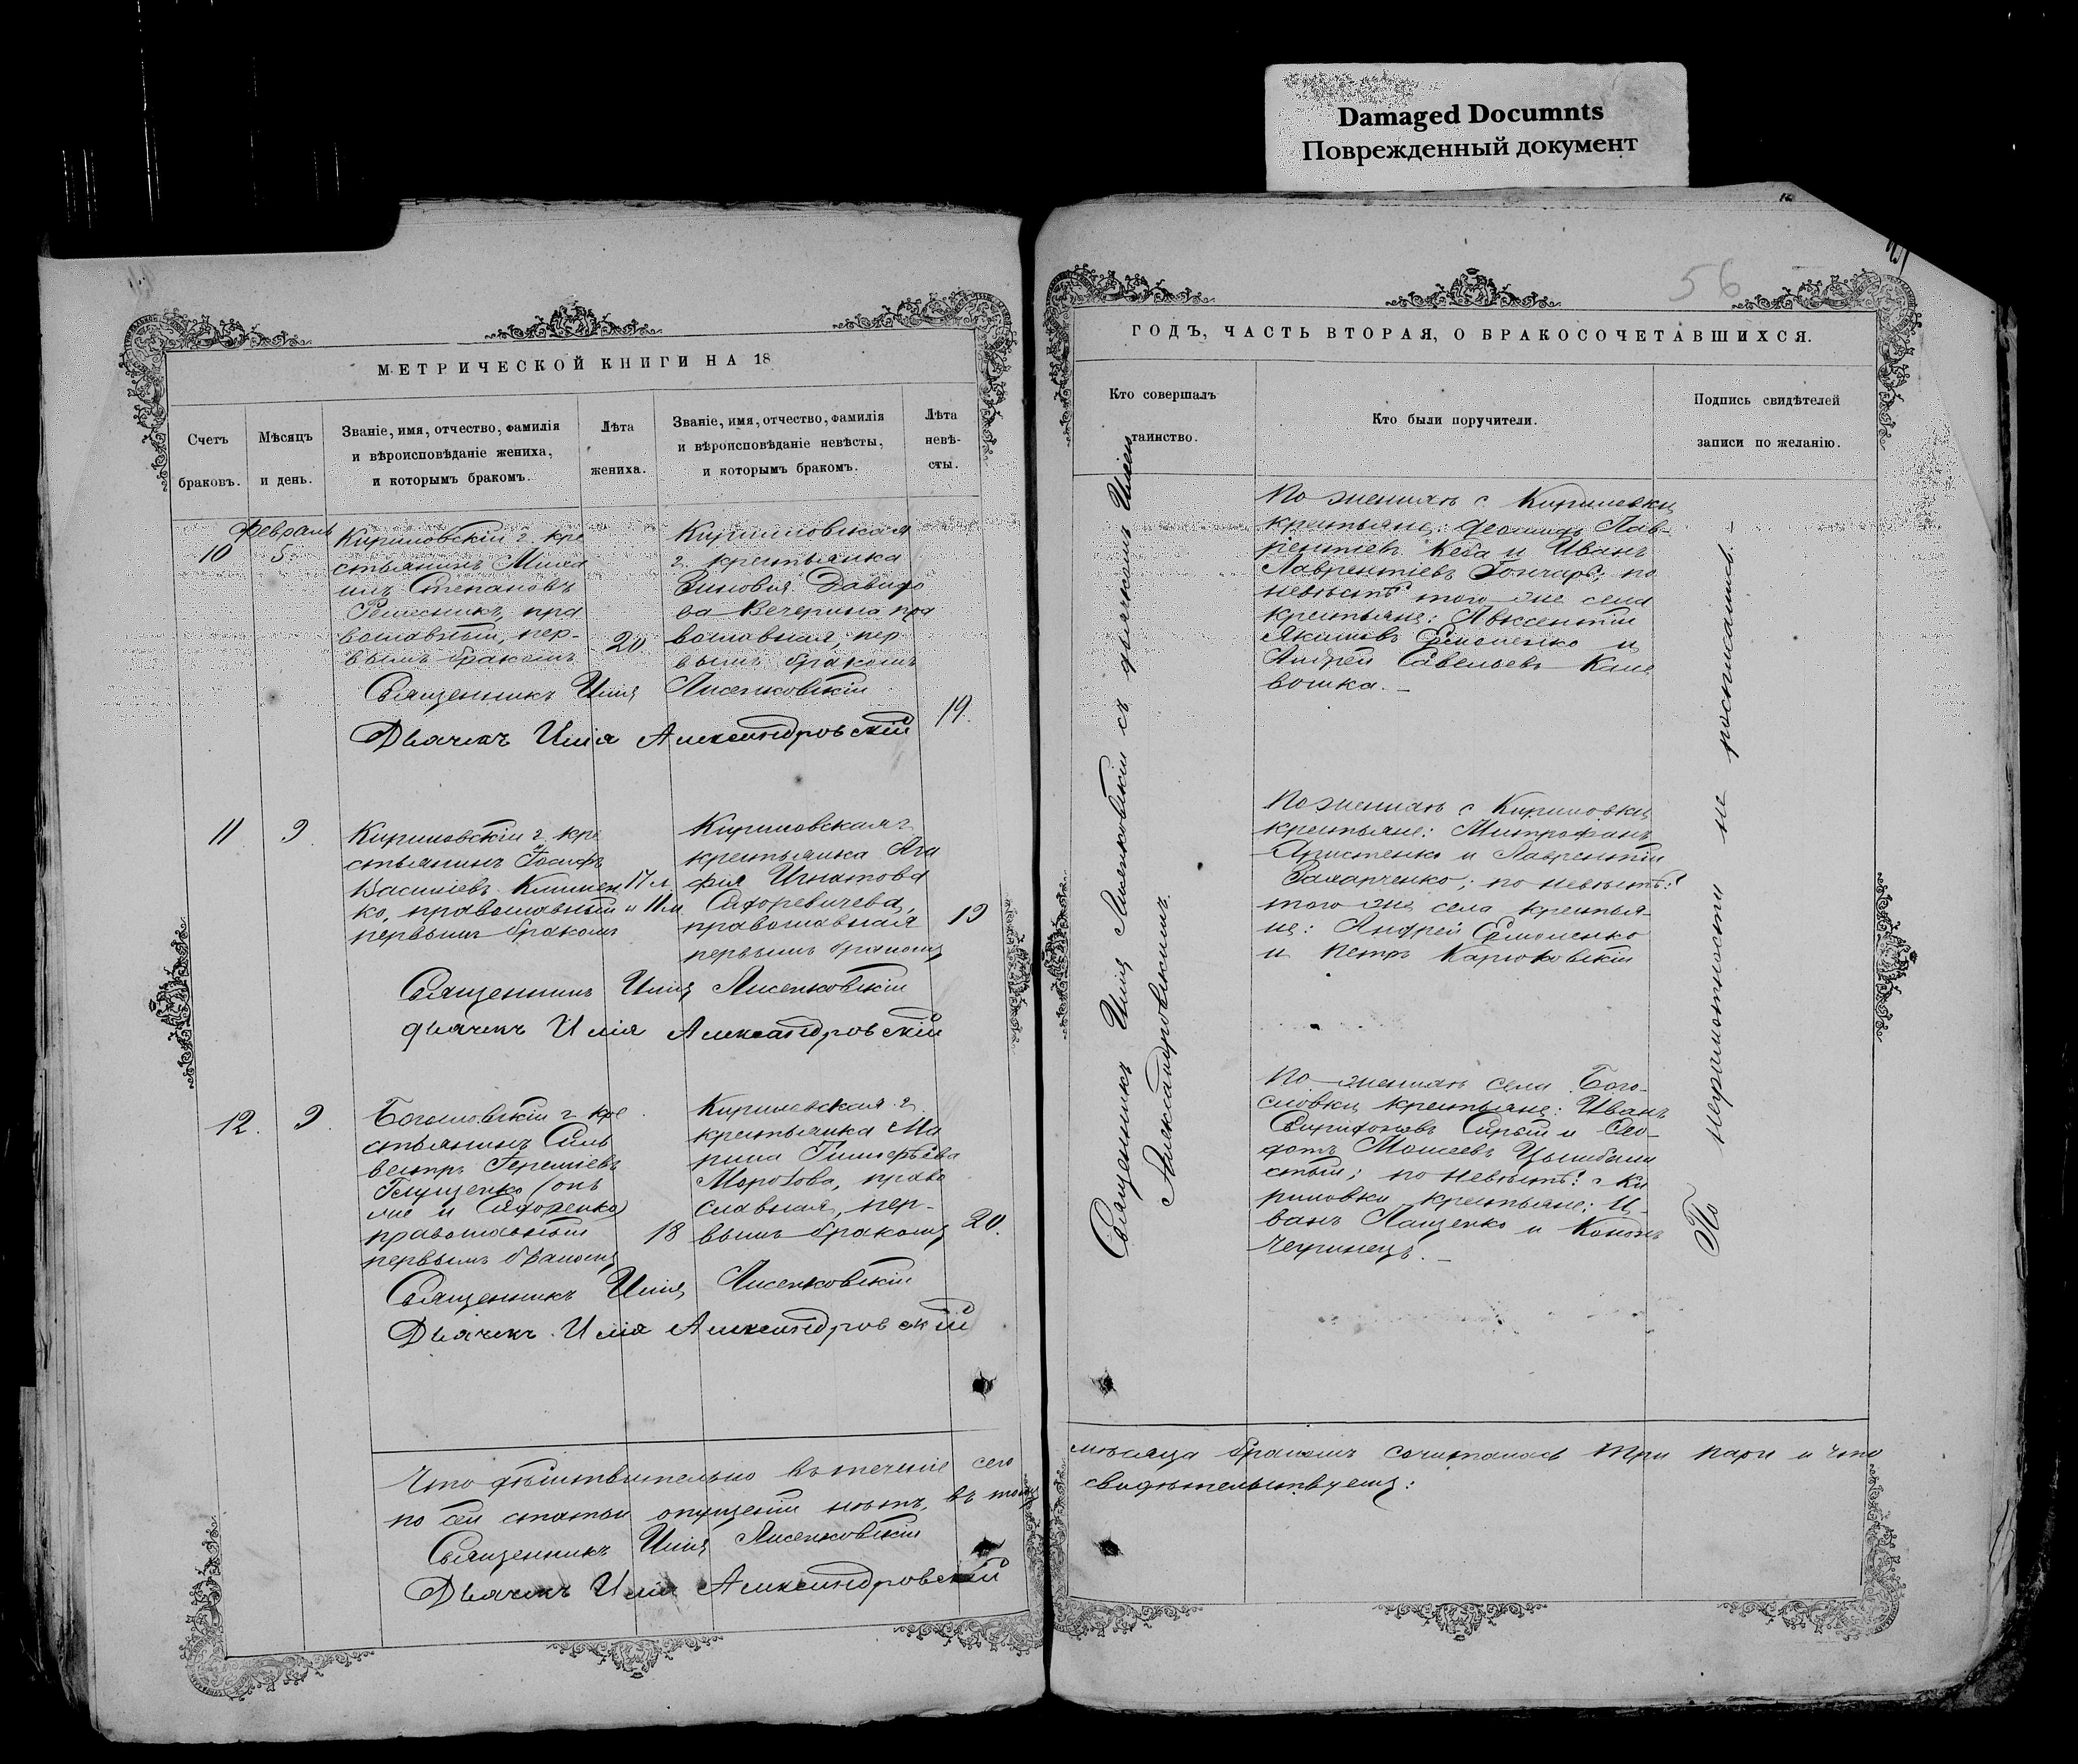 Damaged Documnts
Поврежденный документ
56
МЕТРИЧЕСКОЙ КНИГИ НА 18
Счетъ браковъ.
Мѣсяцъ и день.
Званіе, имя, отчество, фамилія
и вѣроисповѣданіе жениха,
и которымъ бракомъ.
Лѣта жениха.
Званіе, имя, отчество, фамилія
и вѣроисповѣданіе невѣсты,
и которымъ бракомъ.
Лѣта
невѣ-
сты.
Февраль
10
5
Кириловскій г. кре
стьянинъ Миха
илъ Степановъ
Ремесникъ, пра
вославный, пер-
вымъ бракомъ
20
Кириловская
г. крестьянка
Зиновия Давидо
ва Вечерина пра
вославная, пер
вымъ бракомъ
19.
Священникъ Илія Лисенковскій
Дьячекъ Илія Александровскій
11
9.
Кириловскій г. кре
стьянинъ Іосифъ
Василіевъ Климен
ко, православный
первымъ бракомъ
17 л.
и 11 м.
Кириловская г.
крестьянка Ага
фія Игнатова
Сидоревичева,
православная
первымъ бракомъ
19
Священникъ Илія Лисенковскій
дьячекъ Илія Александровскій
12.
9.
Богословскій г. кре
стьянинъ Силь
вестръ Іереміевъ
Глущенко (онъ
же и Сидоренко)
православный
первымъ бракомъ
18
Кирилевская г.
крестьянка Ма
рина Тимофѣева
Морозова, право
славная, пер-
вымъ бракомъ
20.
Священникъ Илія Лисенковскій
Дьячекъ Илія Александровскій
Что дѣйствительно въ теченіе сего
по сей статьи опущеній нѣтъ, въ томъ
Священникъ Илія Лисенковскій
Дьячекъ Илія Александровскій
ГОДЪ, ЧАСТЬ ВТОРАЯ, О БРАКОСОЧЕТАВШИХСЯ.
Кто совершалъ
таинство.
Кто были поручители.
Подпись свидѣтелей
записи по желанію.
Священникъ Илія Лисенковскій съ дьячкомъ Иліею
Александровскимъ.
По женихѣ с Кирилевки
крестьяне: Лав-
рентіевъ Кеба и Иванъ
Лаврентіевъ Гончаръ; по
невѣстѣ того же села
крестьяне: Авксентій
Якимовъ Ермоленко и
Андрей Савельевъ Кале
вошка.
По женихѣ с Кириловки
крестьяне: Митрофанъ
Христенко и Лаврентій
Захарченко; по невѣстѣ:
того же села крестья-
не: Андрей Ермоленко
и Петръ Карюковскій
По женихѣ села Бого-
словки крестьяне: Иванъ
Спиридоновъ Сирый и Ѳео-
дотъ Моисеевъ Цымбали
стый; по невѣстѣ: с Ки
риловки крестьяне: И-
ванъ Пащенко и Кононъ
Чегринецъ.
По неграмотности не росписались.
мѣсяца бракомъ сочиталось три пары и что
свидѣтельствуемъ: